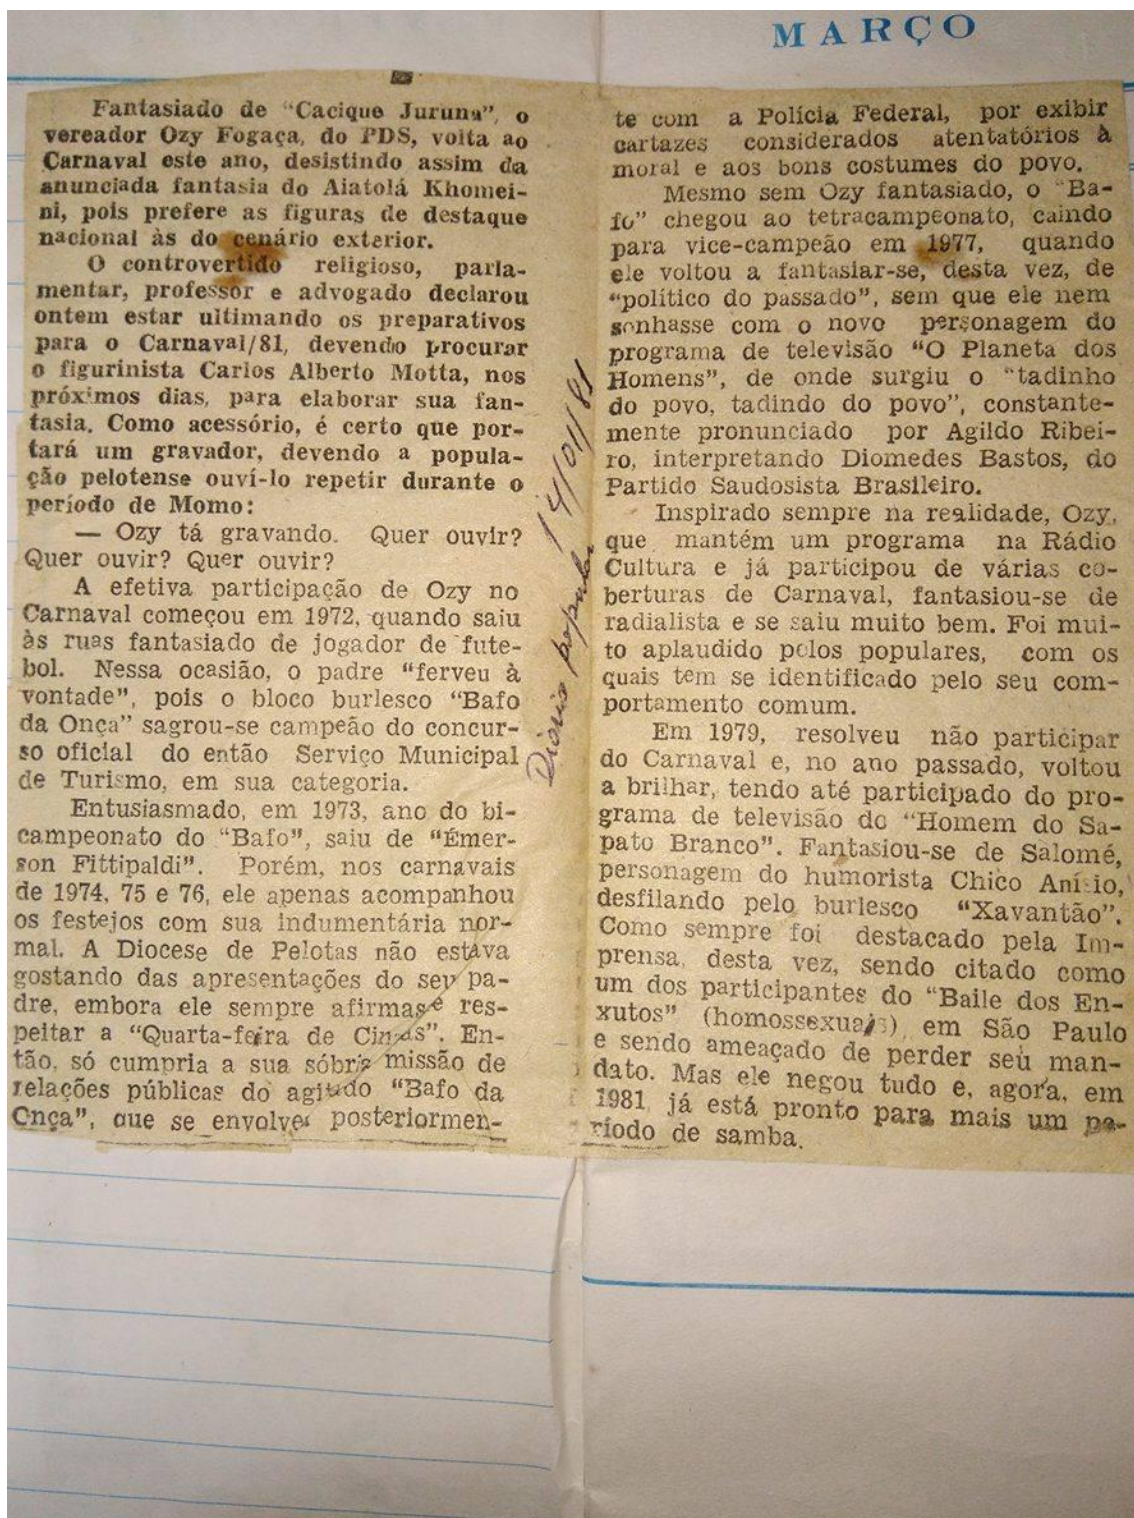 MARÇO
Fantasiado de “Cacique Juruna”, o
vereador Ozy Fogaça, do PDS, volta ao
Carnaval este ano, desistindo assim da
anunciada fantasia do Aiatolá Khomei-
ni, pois prefere as figuras de destaque
nacional às do cenário exterior.
O controvertido religioso, parla-
mentar, professor e advogado declarou
ontem estar ultimando os preparativos
para o Carnaval/81, devendo procurar
o figurinista Carlos Alberto Motta, nos
próximos dias, para elaborar sua fan-
tasia. Como acessório, é certo que por-
tará um gravador, devendo a popula-
ção pelotense ouví-lo repetir durante o
período de Momo:
— Ozy tá gravando. Quer ouvir?
Quer ouvir? Quer ouvir?
A efetiva participação de Ozy no
Carnaval começou em 1972, quando saiu
às ruas fantasiado de jogador de fute-
bol. Nessa ocasião, o padre “ferveu à
vontade”, pois o bloco burlesco “Bafo
da Onça” sagrou-se campeão do concur-
so oficial do então Serviço Municipal
de Turismo, em sua categoria.
Entusiasmado, em 1973, ano do bi-
campeonato do “Bafo”, saiu de “Émer-
son Fittipaldi”. Porém, nos carnavais
de 1974, 75 e 76, ele apenas acompanhou
os festejos com sua indumentária nor-
mal. A Diocese de Pelotas não estava
gostando das apresentações do seu pa-
dre, embora ele sempre afirmasse res-
peitar a “Quarta-feira de Cinzas”. En-
tão, só cumpria a sua sóbria missão de
relações públicas do agitado “Bafo da
Onça”, que se envolveu posteriormen-
Diário popular 14/01/81
te com a Polícia Federal, por exibir
cartazes considerados atentatórios à
moral e aos bons costumes do povo.
Mesmo sem Ozy fantasiado, o “Ba-
fo” chegou ao tetracampeonato, caindo
para vice-campeão em 1977, quando
ele voltou a fantasiar-se, desta vez, de
“político do passado”, sem que ele nem
sonhasse com o novo personagem do
programa de televisão “O Planeta dos
Homens”, de onde surgiu o “tadinho
do povo, tadindo do povo”, constante-
mente pronunciado por Agildo Ribei-
ro, interpretando Diomedes Bastos, do
Partido Saudosista Brasileiro.
Inspirado sempre na realidade, Ozy,
que mantém um programa na Rádio
Cultura e já participou de várias co-
berturas de Carnaval, fantasiou-se de
radialista e se saiu muito bem. Foi mui-
to aplaudido pelos populares, com os
quais tem se identificado pelo seu com-
portamento comum.
Em 1979, resolveu não participar
do Carnaval e, no ano passado, voltou
a brilhar, tendo até participado do pro-
grama de televisão do “Homem do Sa-
pato Branco”. Fantasiou-se de Salomé,
personagem do humorista Chico Anísio,
desfilando pelo burlesco “Xavantão”.
Como sempre foi destacado pela Im-
prensa, desta vez, sendo citado como
um dos participantes do “Baile dos En-
xutos” (homossexuais) em São Paulo
e sendo ameaçado de perder seu man-
dato. Mas ele negou tudo e, agora, em
1981 já está pronto para mais um pe-
ríodo de samba.